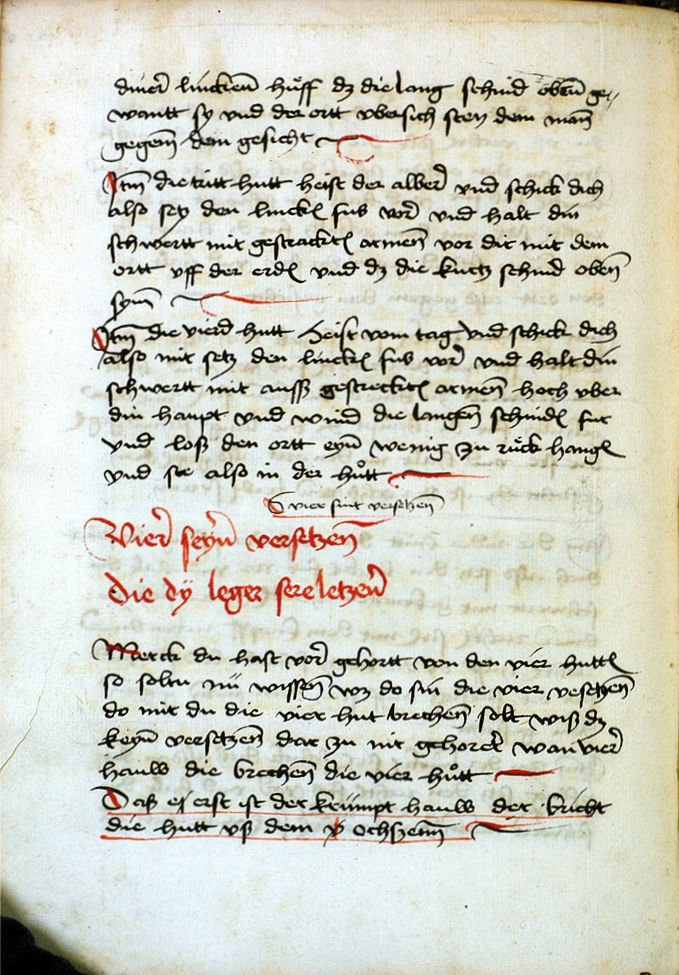 diner lincken hüff dz die lang schnid oben ge-
wantt sy vnd der ortt vbersich sten dem man
gegem dem gesicht
Itm die tritt hutt heist der alber vnd schick dich
also setz den linck fus vor vnd halt din
schwertt mit gestrackt armen vor dir mit dem
ortt vff der erd vnd dz die kurtz schnid oben
sym
Itm die vierd hutt heist vom tag vnd schick dich
also mit setz den linck fus vor vnd halt din
schwertt mit auss gestreckt armen hoch vber
din haupt vnd wind die langen schnid fur
vnd loß den ortt eyn wenig zu rück hang
vnd ste also in der hůtt
D vier sint versetzen
Vier seyn versetzen
die dy leger sere letzen
Merck du hast vor gehortt von den vier hutt
so soltu nü wissen wz do sin die vier vesetzen
do mit du die vier hut brechen solt wiß dz
keyn versetzen dar zu nit gehoret wan vier
hauw die brechen die vier hůtt
Daß erst ist der krümpt hauw der bricht
die hutt vß dem ochszenn